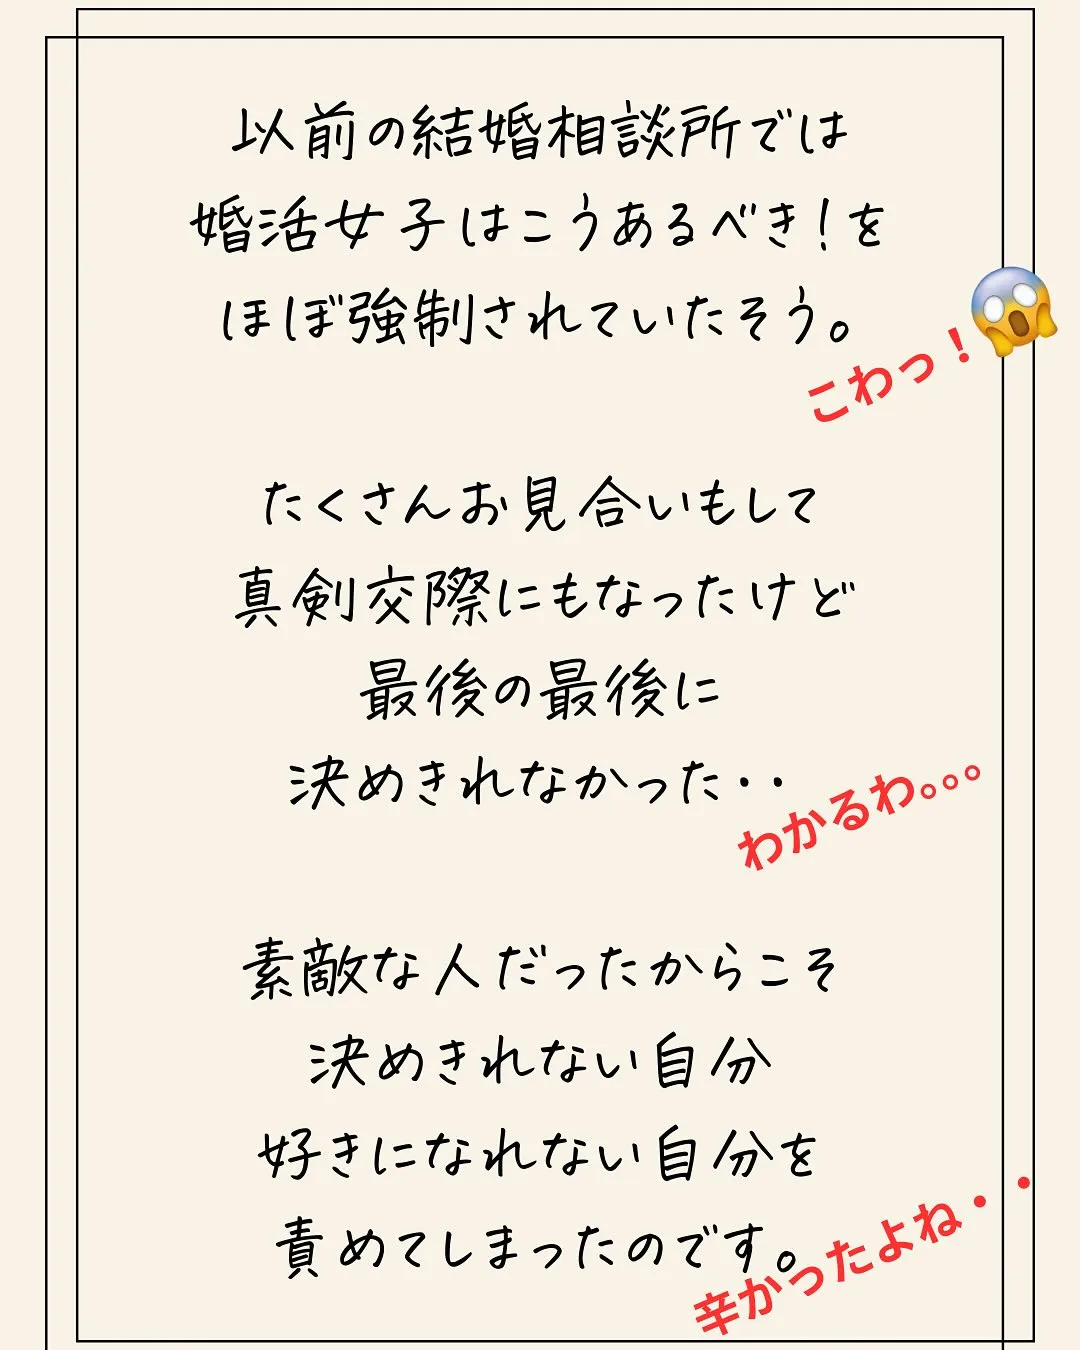 以前の結婚相談所では
婚活女子はこうあるべき!を
ほぼ強制されていたそう。
こわっ!😱
たくさんお見合いもして
真剣交際にもなったけど
最後の最後に
決めきれなかった・・
わかるわ。。。
素敵な人だったからこそ
決めきれない自分
好きになれない自分を
責めてしまったのです。
辛かったよね・・